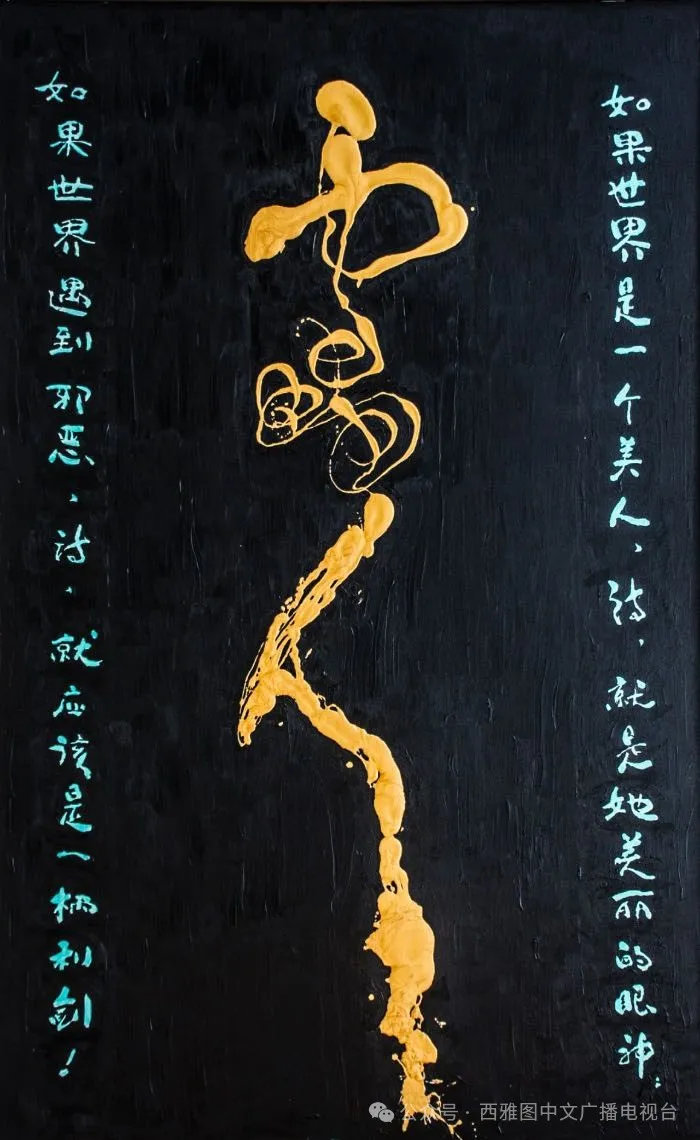 如果世界是一个美人，诗，就是她美丽的眼神；
如果世界遇到邪恶，诗，就应该是一柄利剑！
公众号 · 西雅图中文广播电视台